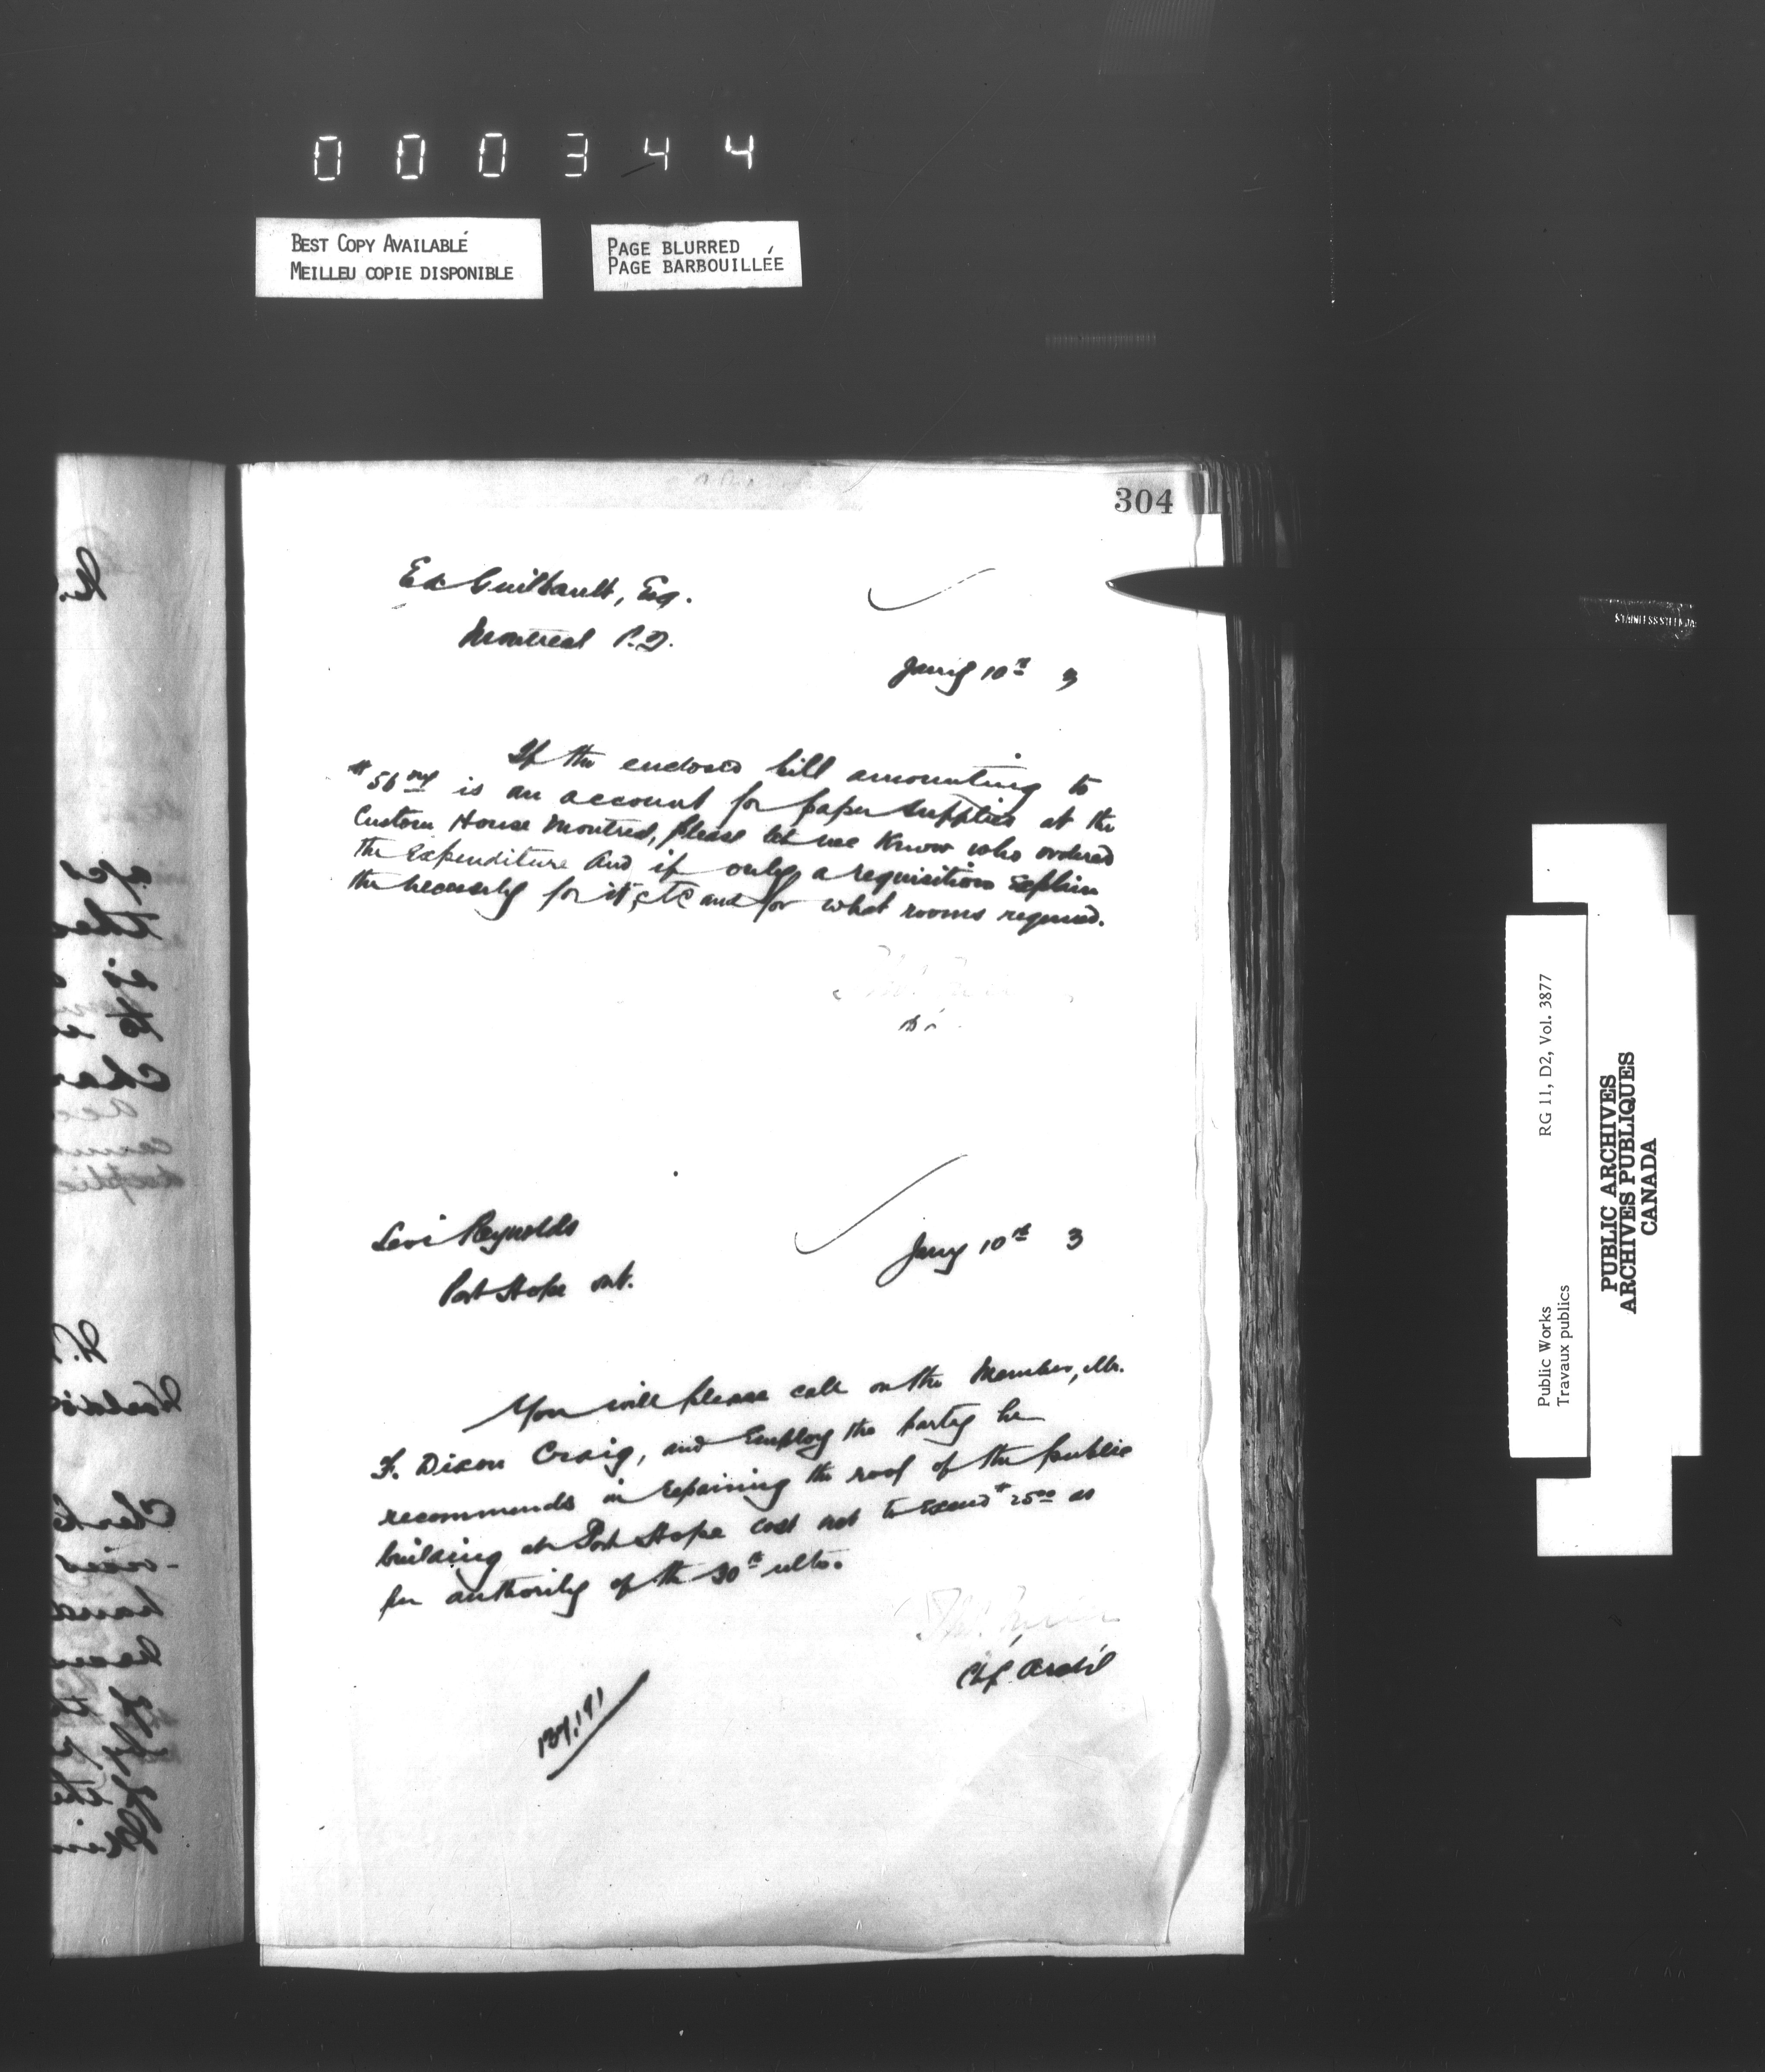 000344
BEST COPY AVAILABLÉ
MEILLEU COPIE DISPONIBLE
PAGE BLURRED
PAGE BARBOUILLÉE
304
Ed Guilbault, Esq.
Montreal P.Q.
Jany 10th 3
If the enclosed bill amounting to
$56 is an account for paper supplies at the
Custom House Montreal, please let me know who ordered
the Expenditure and if only a requisition Explain
the necessity for it, etc and for what rooms required.
Levi Reynolds
Jany 10th 3
Port Hope Ont.
You will please call on the Member, Mr.
F. Dixon Craig, and Employ the party he
recommends in repairing the roof of the public
building at Port Hope cost not to Exceed $25.00 as
per authority of the 30th ulto.
Chf. Archt
RG 11, D2, Vol. 3877
Public Works
Travaux publics
PUBLIC ARCHIVES
ARCHIVES PUBLIQUES
CANADA